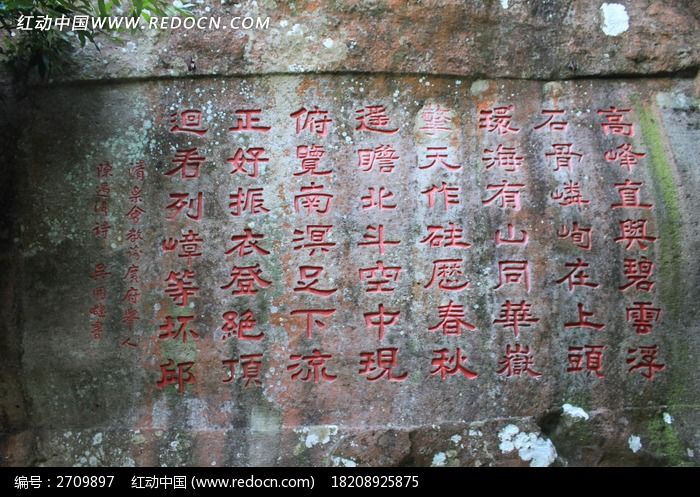 红动中国 WWW.REDOCN.COM
红动中国 WWW.REDOCN.COM
高峰直與碧雲浮
石骨嶙峋在上頭
環海有山同華嶽
擎天作砫厯春秋
遥瞻北斗空中現
俯覽南溟足下流
正好振衣登絕頂
迴看列嶂等坏邱
清 府舉人
陳 詩 書
编号：2709897 红动中国 (www.redocn.com) 18208925875